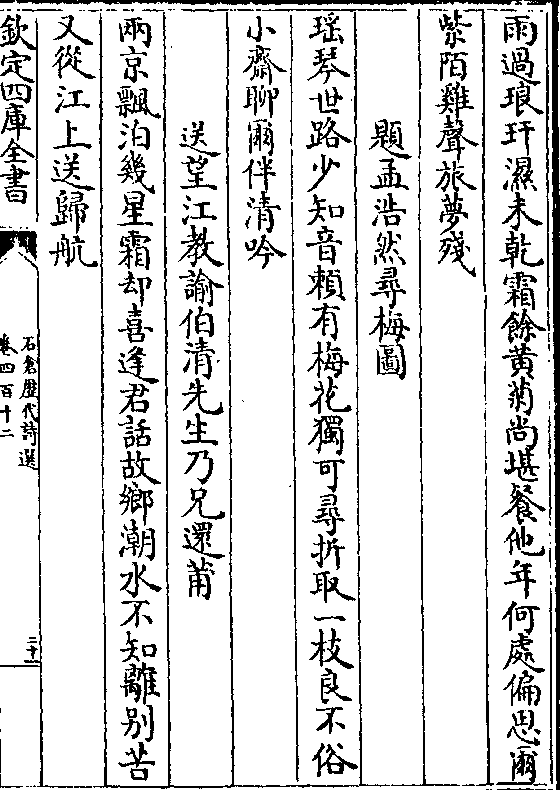 雨過琅玕濕未乾霜餘黄菊尚堪餐他年何處偏思爾
紫陌雞聲旅夢殘
題孟浩然尋梅圖
瑶琴世路少知音頼有梅花獨可尋折取一枝良不俗
小齋聊爾伴清吟
送望江教諭伯清先生乃兄還莆
兩京飄泊幾星霜却喜逢君話故鄉潮水不知離别苦
又從江上送歸航
欽定四庫全書
石倉歴代詩選
卷四百十二
三十一